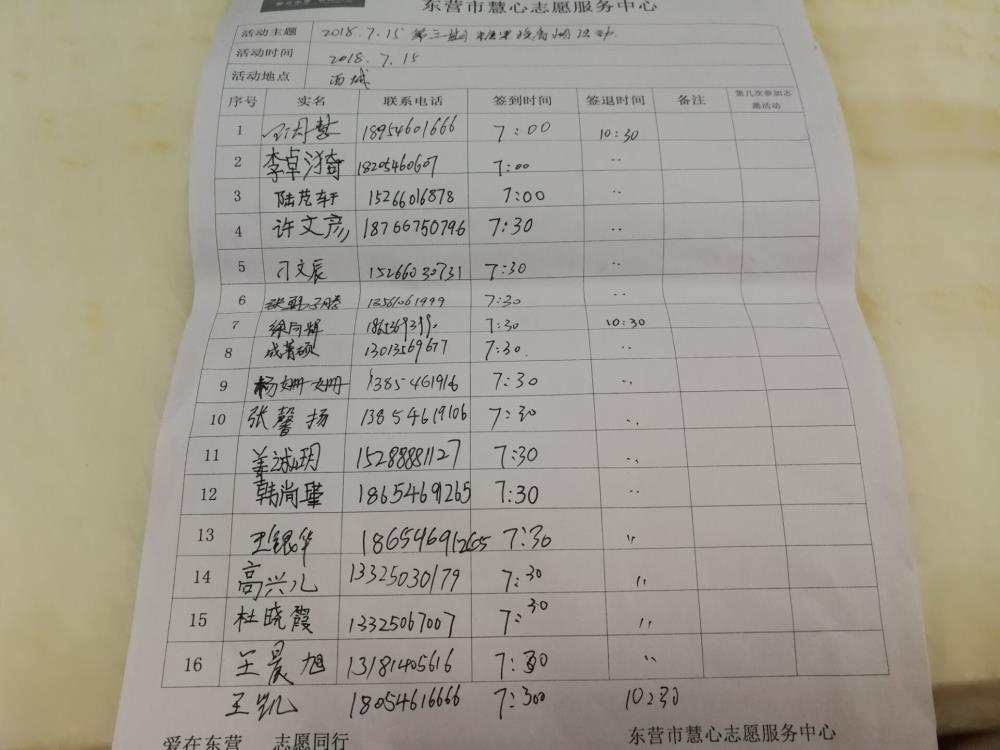 东营市慧心志愿服务中心
活动主题 2018.7.15 第三期
活动时间 2018.7.15
活动地点 西城
序号 实名 联系电话 签到时间 签退时间 备注 第几次参加志愿活动
1 18954601666 7:00 10:30
2 李卓漪 18205460607 7:00 ··
3 陆范轩 15266016878 7:00 ··
4 许文彦 18766750796 7:30 ··
5 刁文辰 15266030731 7:30 ··
6 13561061999 7:30 ··
7 徐同辉 7:30 10:30
8 成菁硕 13013569677 7:30. ··
9 杨姗姗 1385461916 7:30 ··
10 张馨扬 13854619106 7:30 ··
11 姜诚玥 15288881127 7:30 ··
12 韩尚瑾 18654691265 7:30 ··
13 王银华 18654691265 7:30 〃
14 高兴儿 13325030179 7:30 〃
15 杜晓霞 13325067007 7:30 〃
16 王晨旭 13181405616 7:30 〃
王凯 18054616666 7:300 10:30
爱在东营 志愿同行 东营市慧心志愿服务中心